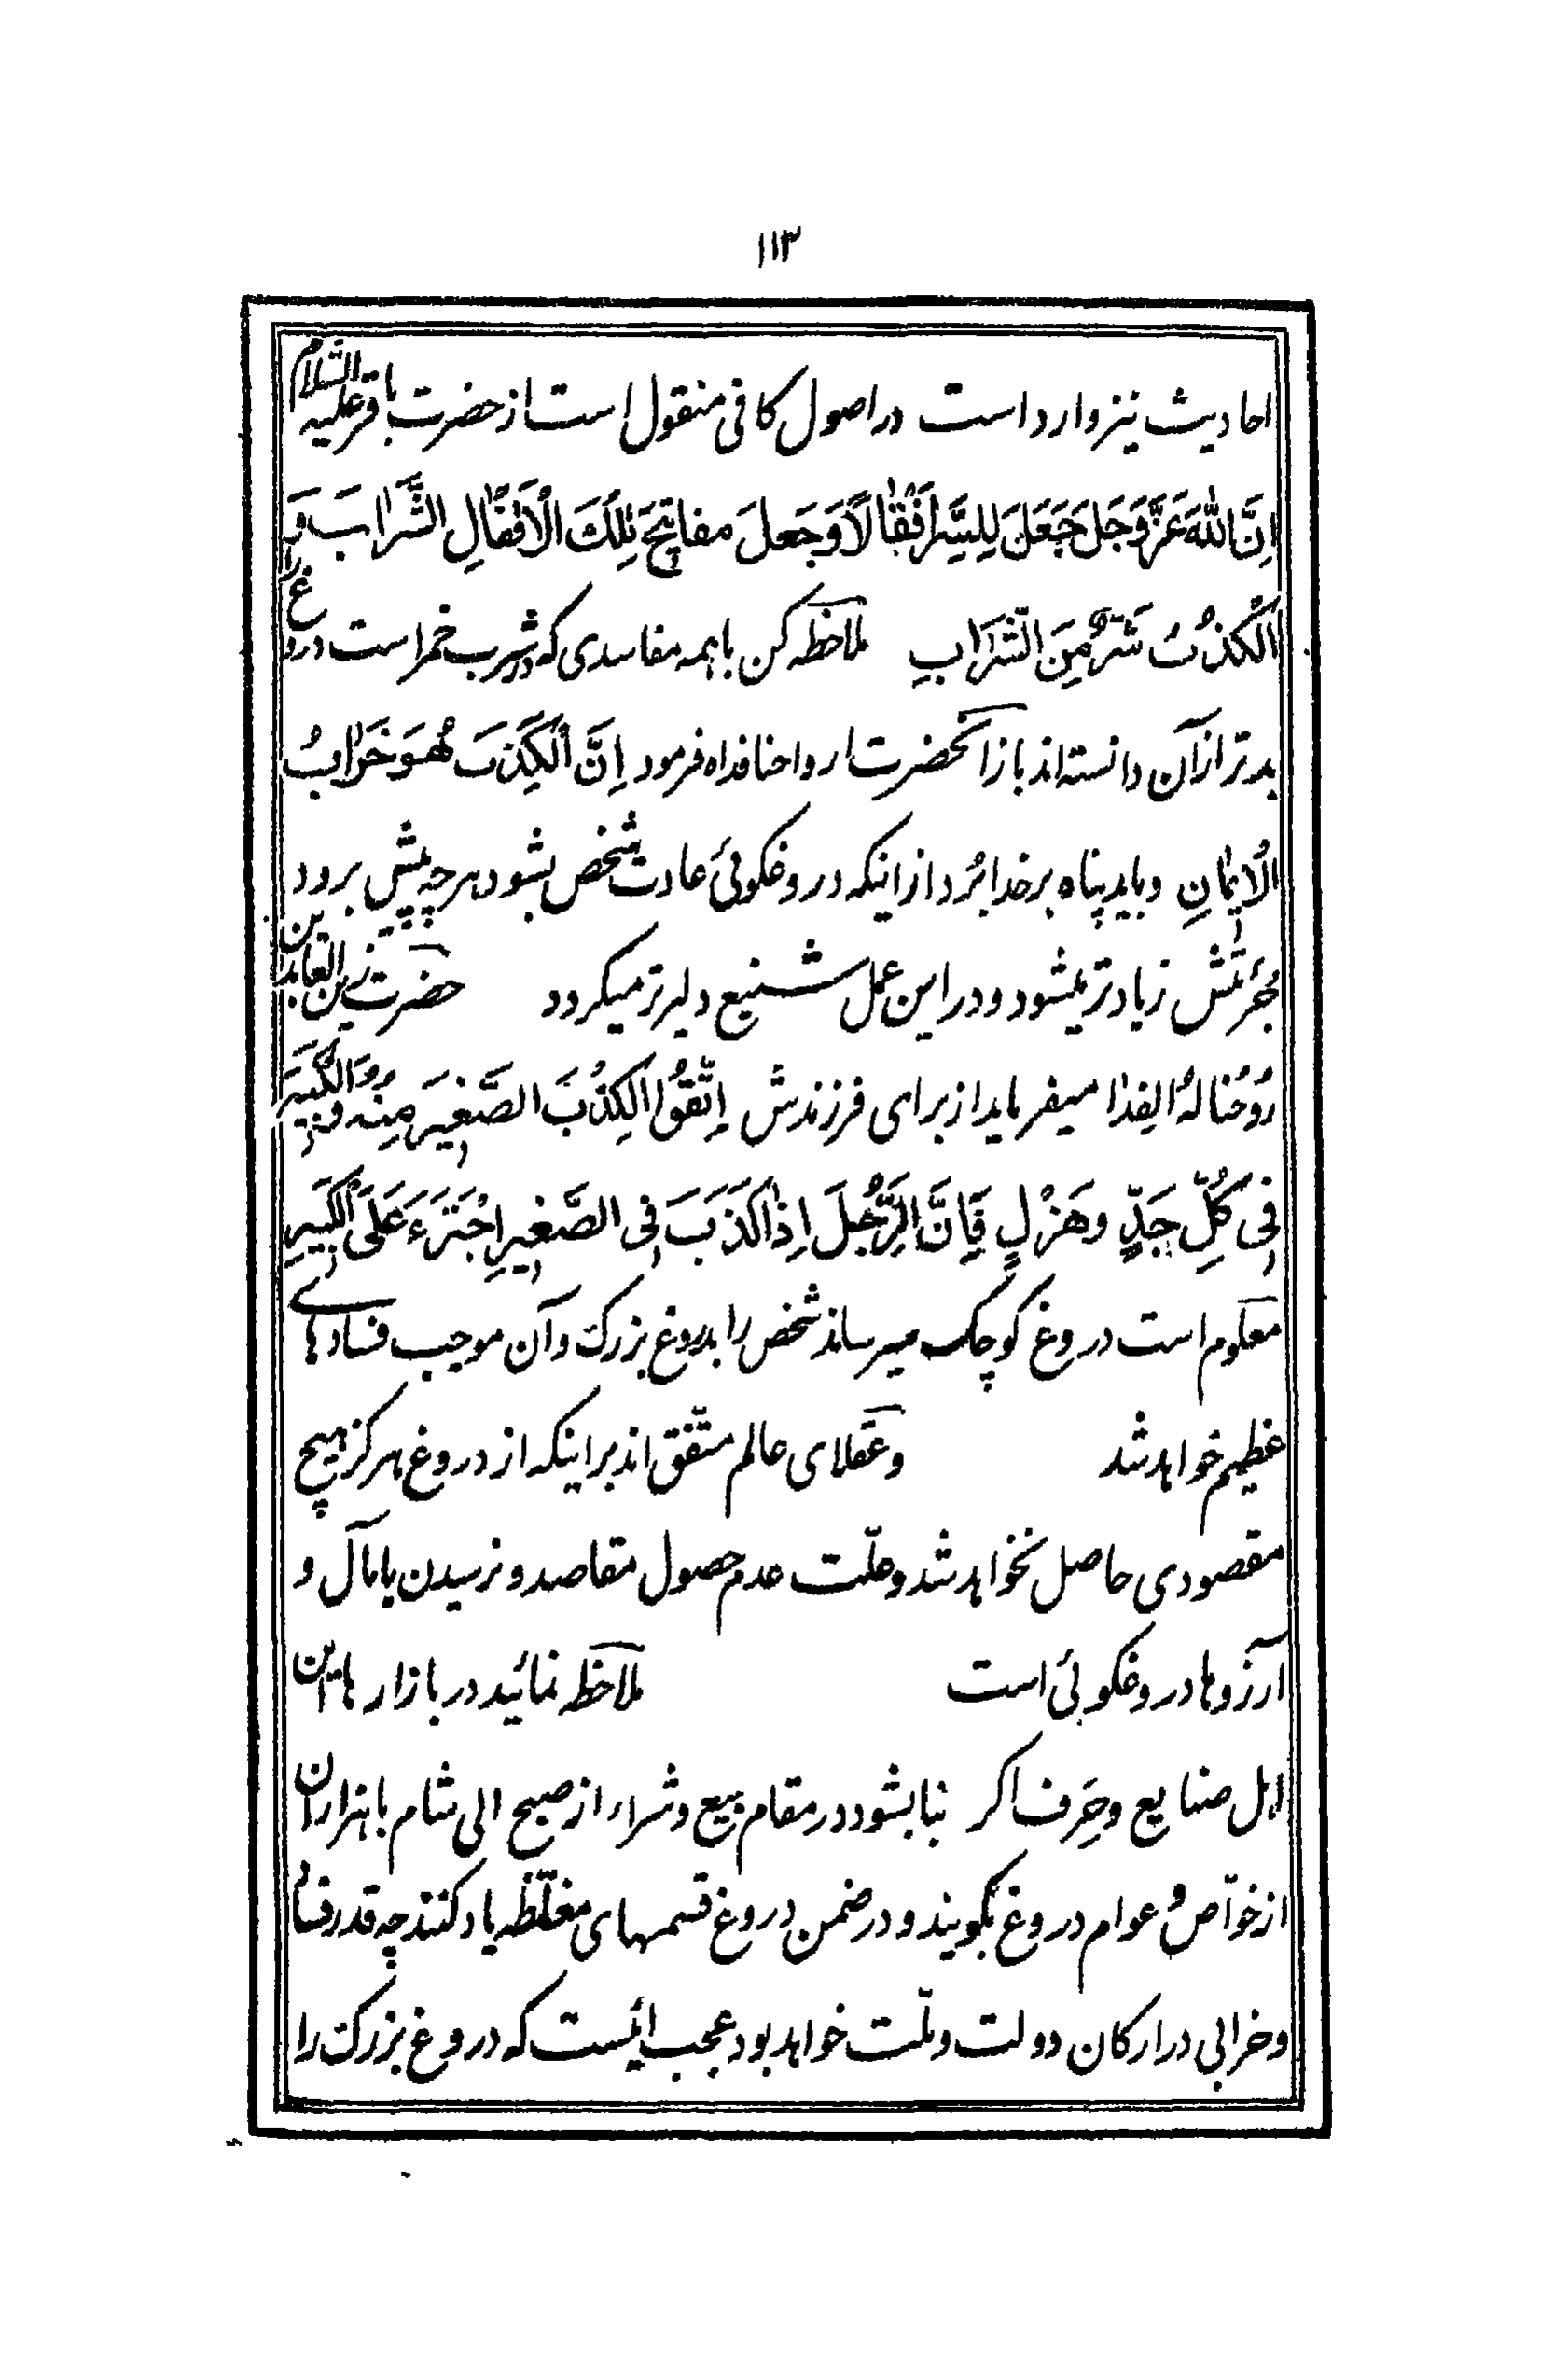 ۱۱۳
احادیث نیز وارد است در اصول کافی منقول است از حضرت باقر علیه السّلام
اِنَّ اللّٰهَ عَزَّ وَجَلَ جَعَلَ لِلِشَّرِ اَقْفٰالاً وَجَعلَ مفاتیحَ تِلْكَ الْاَقْفٰالِ الشَّرابَ وَ
اَلْکذْبُ شَرٌّ مِنَ الشَّرَابِ ملاخظه کن باهمه مفاسدی که در شرب خمر است دروغ را
بدتر از آن دانسته‌اند باز از آنحضرت ارواحنا فداه فرمود اِنَّ الْکِذْبَ هُوَ خَرٰابُ
الْایٖمٰانِ و باید پناه برخدا بُرد از اینکه دروغکوئی عادت شخص بشود هرچه پیش برود
جُرئَتش زیادتر میشود و در این عمل شنیع دلیرتر میکردد حضرت زین العابدین
رُوحُنا لهُ الفِدٰا میفرماید از برای فرزندش اِتَّقُوا الکِذْبَ الصَّغیٖرَ مِنْهُ وَ الْکَبیٖرَ
فیٖ کُلِّ جَدٍّ وهَزْلٍ فَاِنَّ الرَّجُلَ اِذٰا کَذَبَ فیٖ الصَّغیٖرِ اِجْتَرَءَ عَلَی الْکَبیٖرِ
معلوم است دروغ کوچک میرساند شخص را بدروغ بزرک و آن موجب فسادهای
عظیم خواهد شد وعقلای عالم متّفق‌اند براینکه از دروغ هرکز هیچ
مقصودی حاصل نخواهد شد وعلّت عدم حصول مقاصد و نرسیدن بامال و
آرزوها دروغکوئی است ملاخظه نمائید در بازارها این
اهل صنایع وحِرَف اکر بنا بشود در مقام بیع وشراء از صبح الی شام با هزاران
از خوّاص و عوام دروغ بکویند و در ضمن دروغ قسمهای مغلّظه یاد کنند چه قدر فساد
وخرابی در ارکان دولت وملّت خواهد بود عجب اینست که دروغ بزرک را